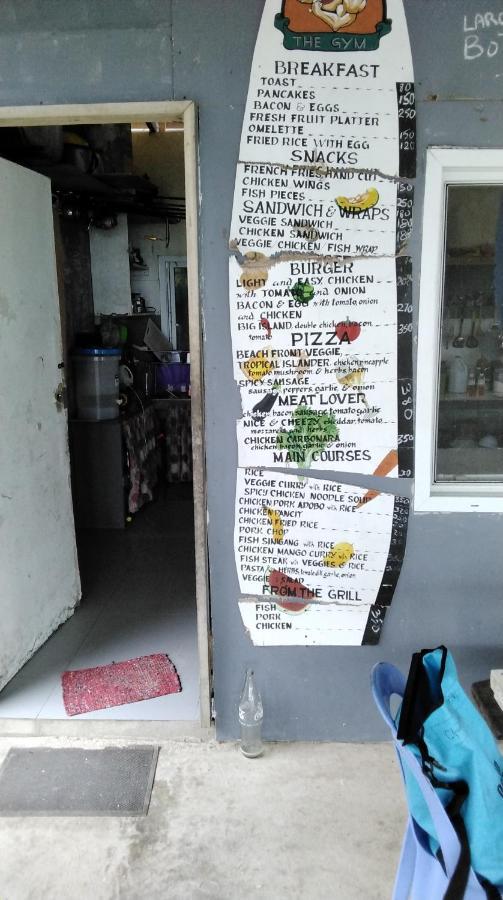 THE GYM
LARG
BREAKFAST
TOAST 80
PANCAKES 150
BACON & EGGS 250
FRESH FRUIT PLATTER
OMELETTE 150
FRIED RICE WITH EGG 120
SNACKS
FRENCH FRIES HAND CUT
CHICKEN WINGS
FISH PIECES 250
SANDWICH & WRAPS
VEGGIE SANDWICH
CHICKEN SANDWICH
VEGGIE CHICKEN FISH WRAP
BURGER
LIGHT and EASY, CHICKEN
with TOMATO and ONION
BACON & EGG with tomato, onion
and CHICKEN 270
BIG ISLAND, double chicken, bacon 350
tomato
PIZZA
BEACH FRONT VEGGIE,
TROPICAL ISLANDER, chicken pineapple
tomato mushroom & herbs bacon
SPICY SAUSAGE
sausage, peppers, garlic, & onion
MEAT LOVER
chicken, bacon sausage, tomato garlic
NICE & CHEEZY cheddar, tomato
mozzarella and herbs
CHICKEN CARBONARA 350
chicken bacon garlic & onion
MAIN COURSES
RICE
VEGGIE CURRY with RICE
SPICY CHICKEN NOODLE SOUP
CHICKEN PORK ADOBO with RICE
CHICKEN PANCIT
CHICKEN FRIED RICE
PORK CHOP
FISH SINIGANG with RICE
CHICKEN MANGO CURRY with RICE
FISH STEAK with VEGGIES & RICE
PASTA with HERBS, tomato garlic, onion
VEGGIE SALAD
FROM THE GRILL
FISH
PORK
CHICKEN